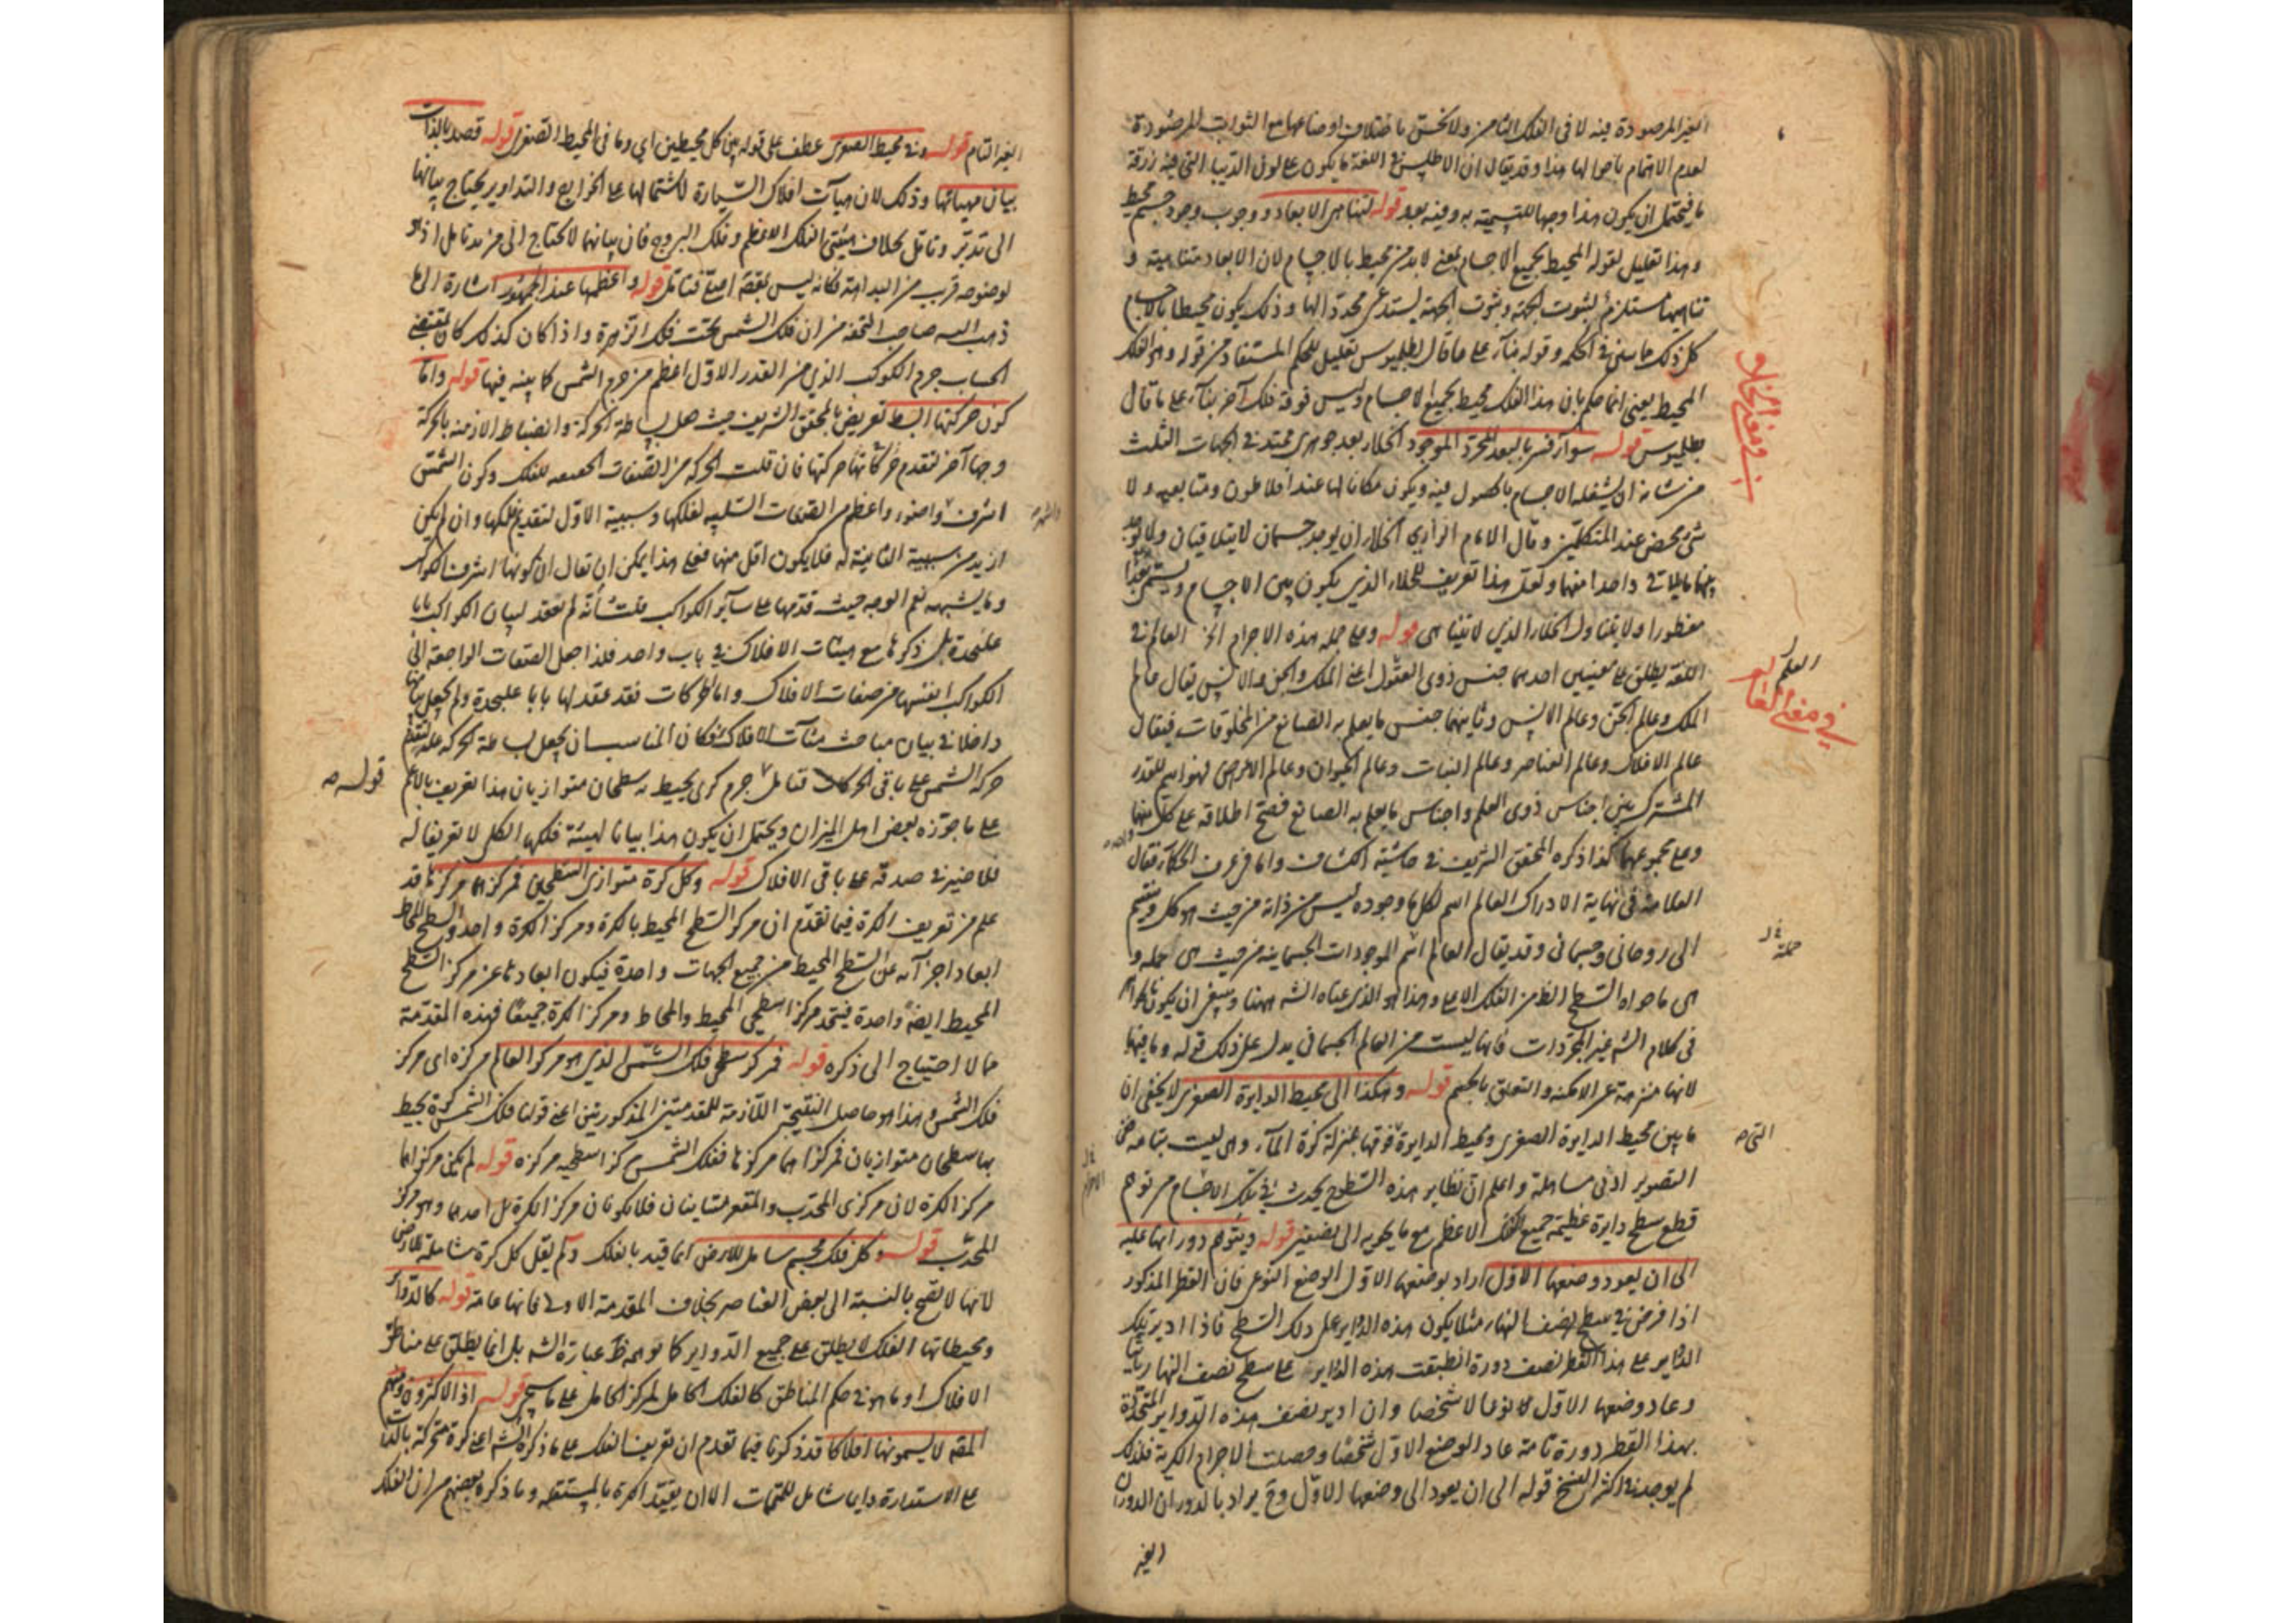 الغير المرصودة فيه لا في الفلك الثامن ولا يختل باختلاف اوضاعها مع الثوابت المرصودة
لعدم الاهتمام باحوالها هذا وقد يقال ان الاطلس في اللغة ما يكون على لون الذيب التي فيه زرقة
فيحتمل ان يكون هذا وجها للتسمية به وفيه بعد قوله لتناهي الابعاد ووجوب وجود جسم محيط
وهذا تعليل لقوله المحيط بجميع الاجسام يعني لا بد من محيط بالاجسام لان الابعاد متناهية و
تناهيها مستلزم لثبوت الجهة وثبوت الجهة يستدعي محددا لها وذلك يكون محيطا بالاجسام
كل ذلك مما بين في الحكمة وقوله بناء على ما قال بطلميوس تعليل للحكم المستفاد من قوله وهو الفلك
المحيط يعني انما حكم بان هذا الفلك محيط بجميع الاجسام وليس فوقه فلك آخر بناء على ما قال
بطلميوس قوله سواء فسر بالبعد المجرد الموجود الخلاء بعد جوهري ممتد في الجهات الثلث
من شانه ان يشغله الاجسام بالحصول فيه ويكون مكانا لها عند افلاطون ومتابعيه ولا
شيء محض عند المتكلمين وقال الامام الرازي الخلاء ان يوجد جسمان لا يتلاقيان ولا يوجد
بينهما ما يلاقي واحدا منهما ولعل هذا تعريف للخلاء الذي يكون بين الاجسام ويسمى بعدا
مفطورا ولا يتناول الخلاء الذي لا يتناهى قوله وعلى جملة هذه الاجرام الخ العالم في
اللغة يطلق على معنيين احدهما جنس ذوي العقول اعني الملك والجن والانس يقال عالم
الملك وعالم الجن وعالم الانس وثانيهما جنس ما يعلم به الصانع من المخلوقات فيقال
عالم الافلاك وعالم العناصر وعالم النبات وعالم الحيوان وعالم الاعراض فهو اسم للقدر
المشترك بين اجناس ذوي العلم واجناس ما يعلم به الصانع فصح اطلاقه على كل منهما
وعلى مجموعهما كذا ذكره المحقق الشريف في حاشية الكشاف واما في عرف الحكماء فقال
العلامة في نهاية الادراك العالم اسم لكل ما وجوده ليس من ذاته من حيث هو كل وينقسم
الى روحاني وجسماني وقد يقال العالم اسم للموجودات الجسمانية من حيث هي جملة و
هي ما حواه السطح الظ من الفلك الاعلى وهذا هو الذي عناه الشه ههنا وينبغي ان يكون
في كلام الشه غير المجردات فانها ليست من العالم الجسماني يدل على ذلك قوله وما فيها
لانها منزهة عن الامكنة والتعلق بالجسم قوله وهكذا الى محيط الدايرة الصغرى لا يخفى ان
ما بين محيط الدايرة الصغرى ومحيط الدايرة فوقها بمنزلة كرة الماء وهي ليست بتامة
التصوير ادنى مساهلة واعلم ان نظاير هذه السطوح يحدث في تلك الاجسام من توهم
قطع سطح دايرة عظيمة جميع الفلك الاعظم مع ما يحويه الى نصفين قوله ويتوهم دورانها عليه
الى ان يعود وضعها الاول اراد بوضعها الاول الوضع النوعي فان القطر المذكور
اذا فرض في سطح نصف النهار مثلا يكون هذه الدواير على ذلك السطح فاذا ادير تلك
الدواير على هذا القطر نصف دورة انطبقت هذه الدواير على سطح نصف النهار
وعاد وضعها الاول نوعا لا شخصا وان ادير نصف هذه الدواير المتحركة
بهذا القطر دورة تامة عاد الوضع الاول شخصا وحصلت الاجرام الكرية فلذلك
لم يوجد في اكثر النسخ قوله الى ان يعود الى وضعها الاول وح يراد بالدوران الدوران
الغير
في معنى الخلاء
العلم
في معنى العالم
جملة
التي
الغير التام قوله وفي محيط الصغرى عطف على قوله بين كل محيطين اي وما في المحيط الصغرى قوله قصد بالذات
بيان هيئاتها وذلك لان هيآت افلاك السيارة لاشتمالها على الخوارج والتداوير يحتاج بيانها
الى تدبر وتامل بخلاف هيئتي الفلك الاعظم وفلك البروج فان بيانهما لا يحتاج الى مزيد تامل اذ هو
لوضوحه قرب من البداهة فكانه ليس بقصد اصلي فتامل قوله واعظمها عند الجمهور اشارة الى ما
ذهب اليه صاحب التحفة من ان فلك الشمس تحت فلك الزهرة واذا كان كذلك كان بمقتضى
الحساب جرم الكوكب الذي من القدر الاول اعظم من جرم الشمس كما بينه فيها قوله واما
كون حركتها ابسط تعريض بالمحقق الشريف حيث جعل بساطة الحركة وانضباط الازمنة بالحركة
وجها آخر لتقدم حركاتها فان قلت الحركة من الصفات الحقيقية للفلك وكون الشمس
اشرف واضوء واعظم من الصفات السلبية لفلكها وسببية الاول لتقديم فلكها وان لم يكن
ازيد من سببية الثانية له فلا يكون اقل منها فعلى هذا يمكن ان يقال ان كونها اشرف الكواكب
وما يشبهه نعم الوجه حيث قدمها على سائر الكواكب قلت شأنه لم يعقد لبيان الكواكب بابا
عليحدة بل ذكرها مع هيئات الافلاك في باب واحد فلذا جعل الصفات الواصفة الى
الكواكب انفسها من صفات الافلاك واما الحركات فقد عقد لها بابا عليحدة ولم يجعل بيانها
داخلا في بيان مباحث هيئات الافلاك فكان المناسب ان يجعل بساطة الحركة علة لتقدم
حركة الشمس على باقي الحركات فتامل جرم كري يحيط به سطحان متوازيان هذا تعريف بالاعم
على ما جوزه بعض اهل الميزان ويحتمل ان يكون هذا بيانا لهيئة فلكها الكلي لا تعريفا له
فلا ضير في صدقه على باقي الافلاك قوله وكل كرة متوازي السطحين فمركزهما مركزها قد
علم من تعريف الكرة فيما تقدم ان مركز السطح المحيط بالكرة ومركز الكرة واحد والسطح المحاط
ابعاد اجزائه عن السطح المحيط من جميع الجهات واحدة فيكون ابعادها عن مركز السطح
المحيط ايضا واحدة فيتحد مركز سطحي المحيط والمحاط ومركز الكرة جميعا فهذه المقدمة
مما لا احتياج الى ذكره قوله فمركز سطحي فلك الشمس الذي هو مركز العالم مركزه اي مركز
فلك الشمس وهذا هو حاصل النتيجة اللازمة للمقدمتين المذكورتين اعني قولنا فلك الشمس كرة يحيط
بها سطحان متوازيان فمركزاهما مركزها ففلك الشمس مركز سطحيه مركزه قوله لم يكن مركزاهما
مركز الكرة لان مركزي المحدب والمقعر متباينان فلا يكونان مركز الكرة بل احدهما وهو مركز
المحدب قوله وكل فلك مجسم شامل للارض انما قيد بالفلك ولم يقل كل كرة شاملة للارض
لانها لا تصح بالنسبة الى بعض العناصر بخلاف المقدمة الاولى فانها عامة قوله كالدواير
ومحيطاتها الفلك لا يطلق على جميع الدواير كما يوهمه ظ عبارة الشه بل انما يطلق على مناطق
الافلاك او ما هو في حكم المناطق كالفلك الحامل لمركز الحامل على ما سيجئ قوله اذ الاكثرون ومنهم
المصه لا يسمونها افلاكا قد ذكرنا فيما تقدم ان تعريف الفلك على ما ذكره الشه اعني كرة متحركة بالذات
على الاستدارة دايما شامل للمتممات الا ان يقيد الكرة بالمستقلة وما ذكره بعضهم من ان الفلك
قوله